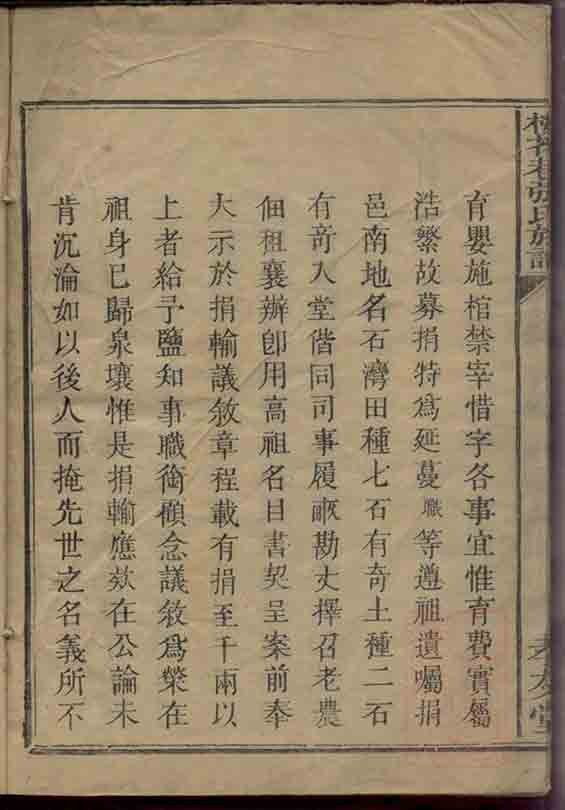 張氏族
育嬰施棺禁宰惜字各事宜惟育費實屬
浩繁故募捐特爲延蔓職等遵祖遺囑捐
邑南地名石灣田種七石有奇土種二石
有奇入堂偕同司事履畝勘丈擇召老農
佃租襄辦卽用高祖名目書契呈案前奉
大示於捐輸議敘章程載有捐至千兩以
上者給予鹽知事職銜頋念議敘爲榮在
祖身已歸泉壤惟是捐輸應欸在公論未
肯沉淪如以後人而掩先世之名義所不